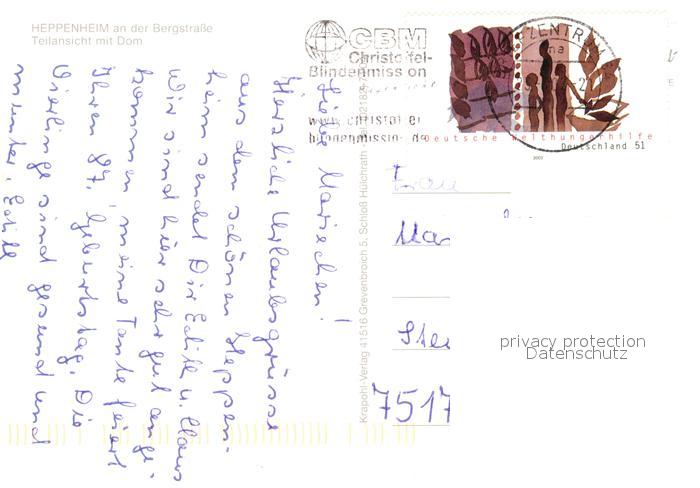 HEPPENHEIM an der Bergstraße
Teilansicht mit Dom
CBM
Christoffel-
Blindenmission
www.christoffel-
blindenmission.de
ZENTRUM
Deutsche Welthungerhilfe
Deutschland 51
2002
Liebe Mariechen!
Herzliche Urlaubsgrüsse
aus dem schönen Heppen-
heim sendet Dir Edith u. Claus
Wir sind hier sehr gut ange-
kommen, meine Tante feiert
Ihren 87. Geburtstag. Die
Vierlinge sind gesund und
munter. Edith
Krapohl-Verlag 41516 Grevenbroich 5, Schloß Hülchrath
Frau
Mar
Ste
7517
privacy protection
Datenschutz